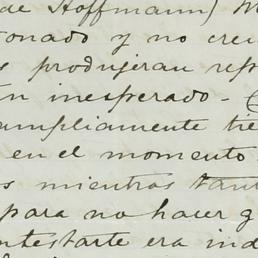 de Hoffmann) M
onado y no creu
s produjeran rep
én inesperado. - C
ampliamente tie
en el momento
s mientras tant
para no hacer q
ntestarte era ind